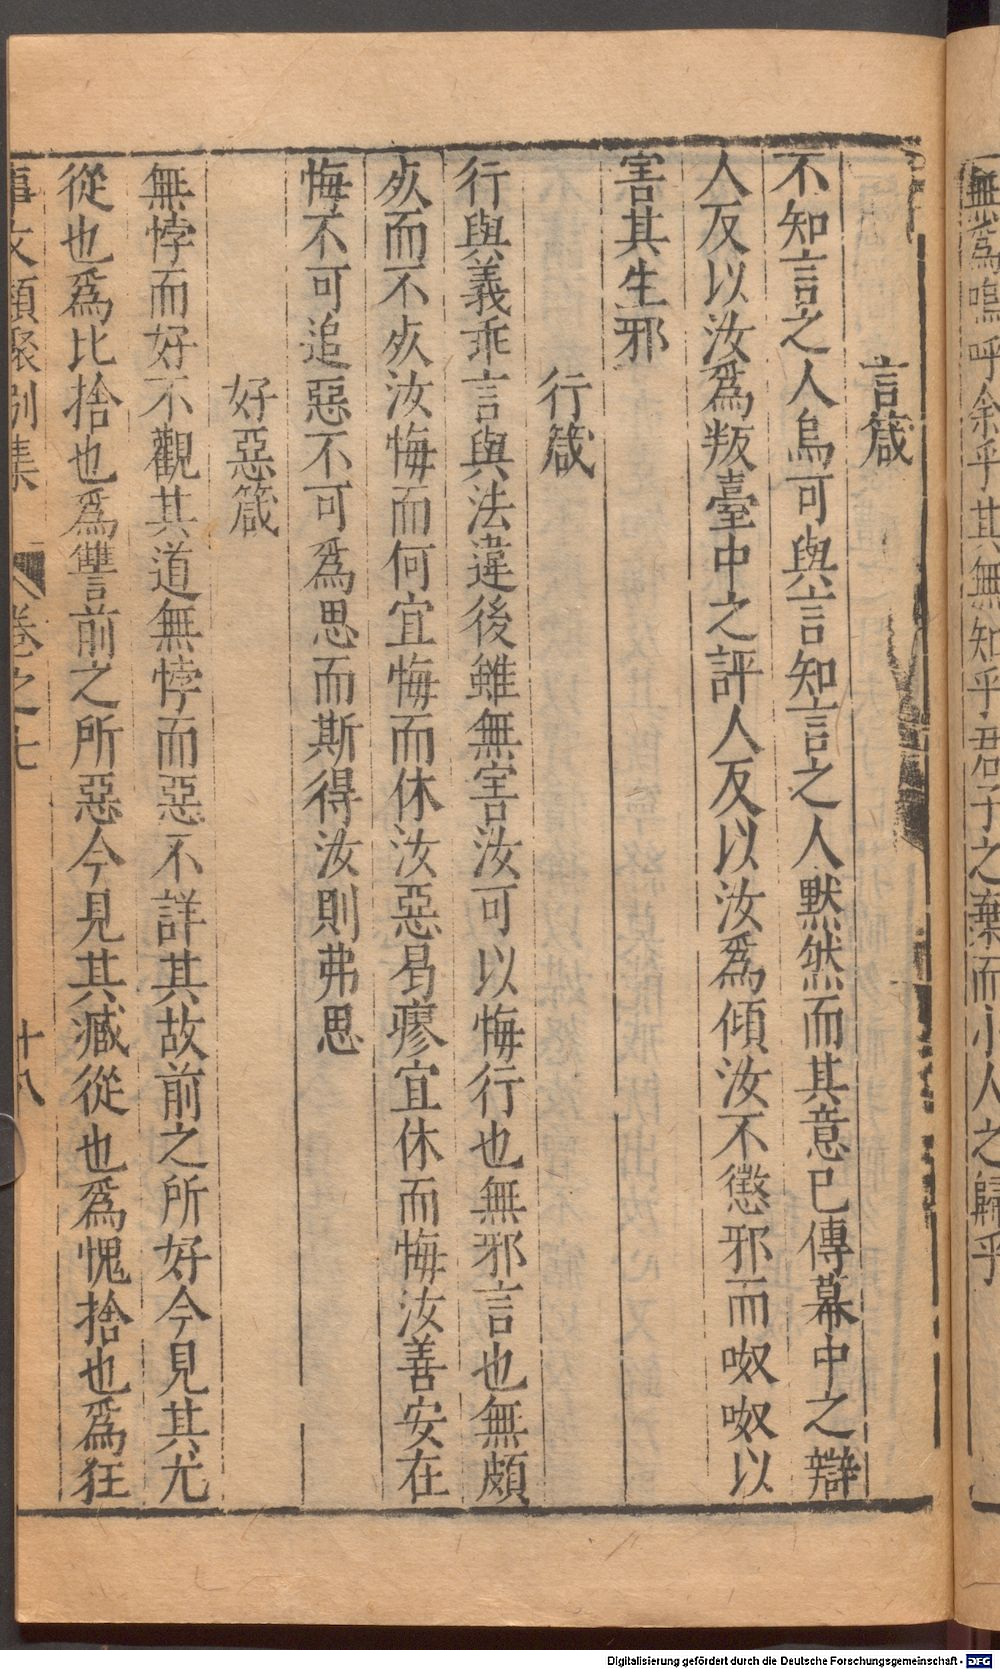 無爲嗚呼余乎其無知乎君子之棄而小人之歸乎
言箴
不知言之人烏可與言知言之人默然而其意已傳幕中之辯
人反以汝爲叛臺中之評人反以汝爲傾汝不懲邪而呶呶以
害其生邪
行箴
行與義乖言與法違後雖無害汝可以悔行也無邪言也無頗
㱙而不㱙汝悔而何宜悔而休汝惡曷瘳宜休而悔汝善安在
悔不可追惡不可爲思而斯得汝則弗思
好惡箴
無悖而好不觀其道無悖而惡不詳其故前之所好今見其尤
從也爲比捨也爲讐前之所惡今見其臧從也爲愧捨也爲狂
事文類聚別集 卷之七 十八
Digitalisierung gefördert durch die Deutsche Forschungsgemeinschaft - DFG